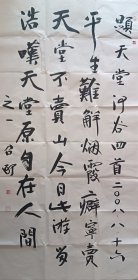 題天堂河谷四首二〇〇八八十六
平生難解烟霞癖寧賣
天堂不賣山今日此游当
浩嘆天堂原自在人間
之一